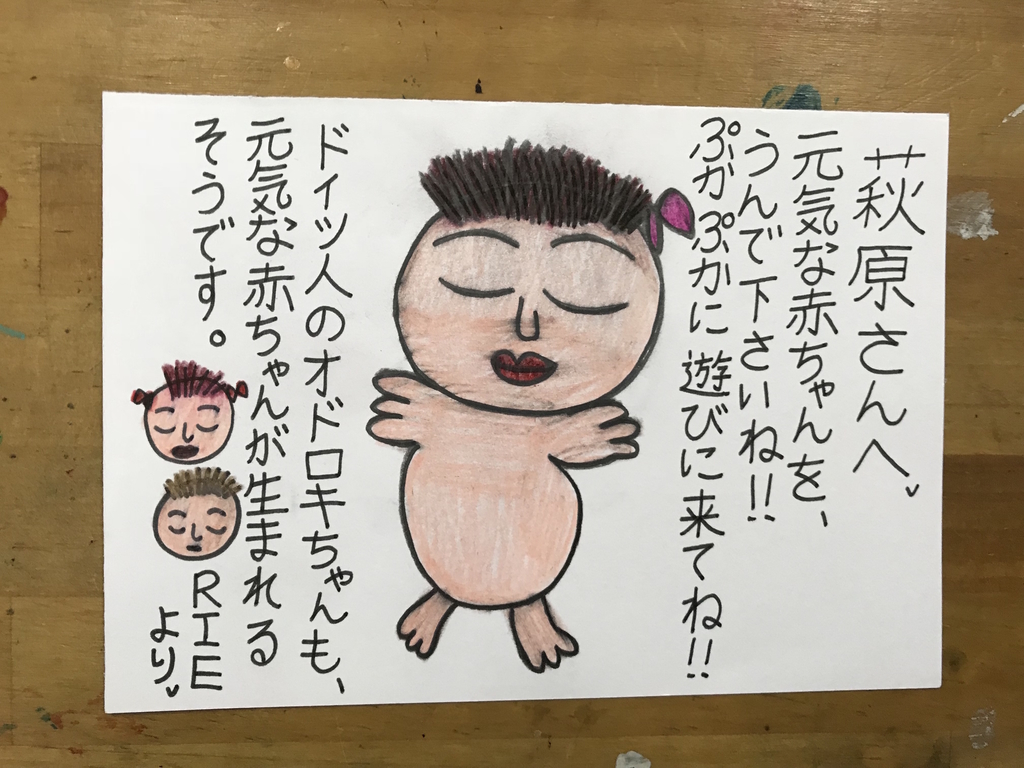 萩原さんへ、
元気な赤ちゃんを、
うんで下さいね!!
ぷかぷかに遊びに来てね!!
ドイツ人のオドロキちゃんも、
元気な赤ちゃんが生まれる
そうです。
RIE
より、